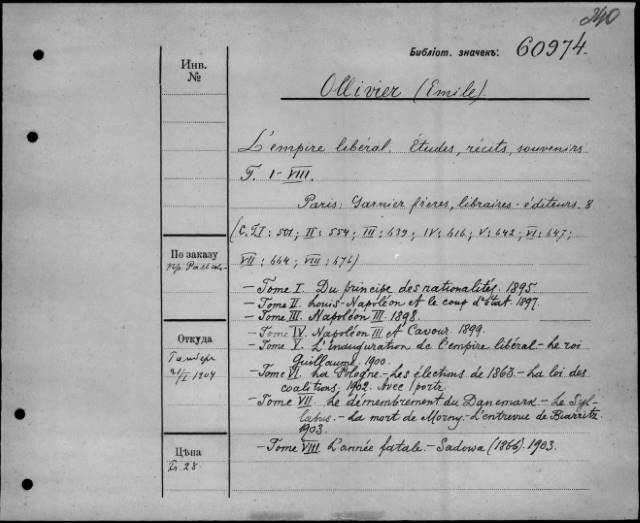 240
Библіот. значекъ: 60974.
Инв. №
Ollivier (Emile).
L'empire libéral. Études, récits, souvenirs
T. I-VIII.
Paris: Garnier frères, libraires-éditeurs. 8
(C. T I: 501; II: 554; III: 639; IV: 616; V: 642; VI: 647;
VII: 664; VIII: 676)
По заказу
- Tome I. Du principe des nationalités. 1895.
- Tome II. Louis-Napoléon et le coup d'état. 1897.
- Tome III. Napoléon III. 1898.
Откуда
- Tome IV. Napoléon III et Cavour. 1899.
- Tome V. L'inauguration de l'empire libéral - Le roi
Guillaume. 1900.
- Tome VI. La Pologne. - Les élections de 1863 - La loi des
coalitions. 1902. Avec 1 portr.
21/I 1904
- Tome VII. Le démembrement du Danemark - Le Syl-
labus - La mort de Morny - L'entrevue de Biarritz.
1903.
Цѣна
- Tome VIII L'année fatale - Sadowa (1866). 1903.
Fr. 28